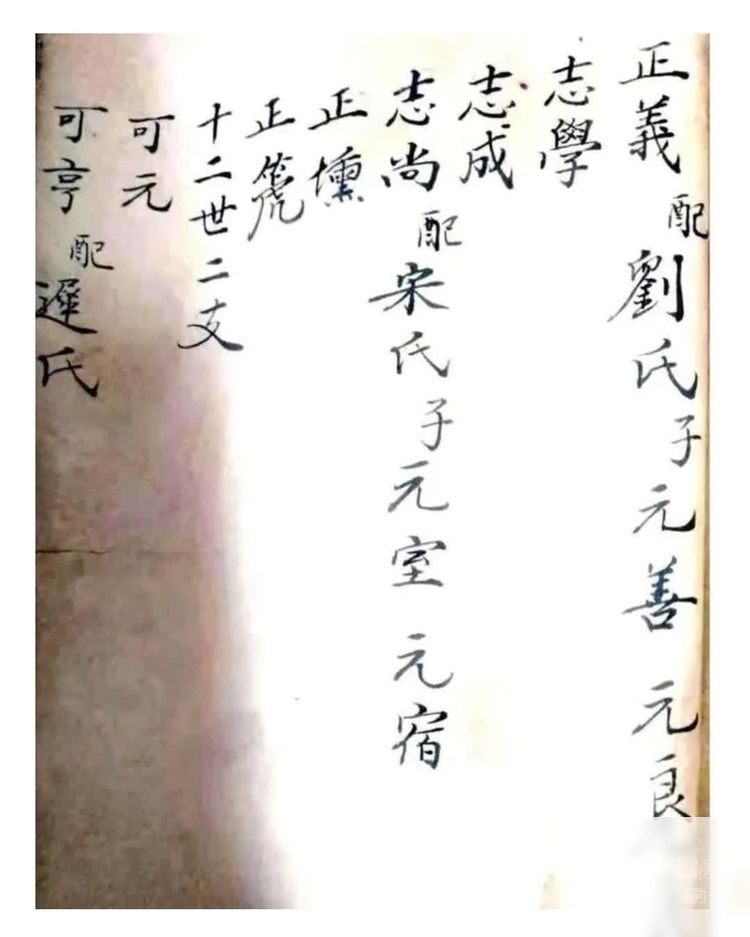 正義 配 劉氏 子 元善 元良
志學
志成
志尚 配 宋氏 子 元室 元宿
正壎
正箎
十二世二支
可元
可亨 配 遲氏